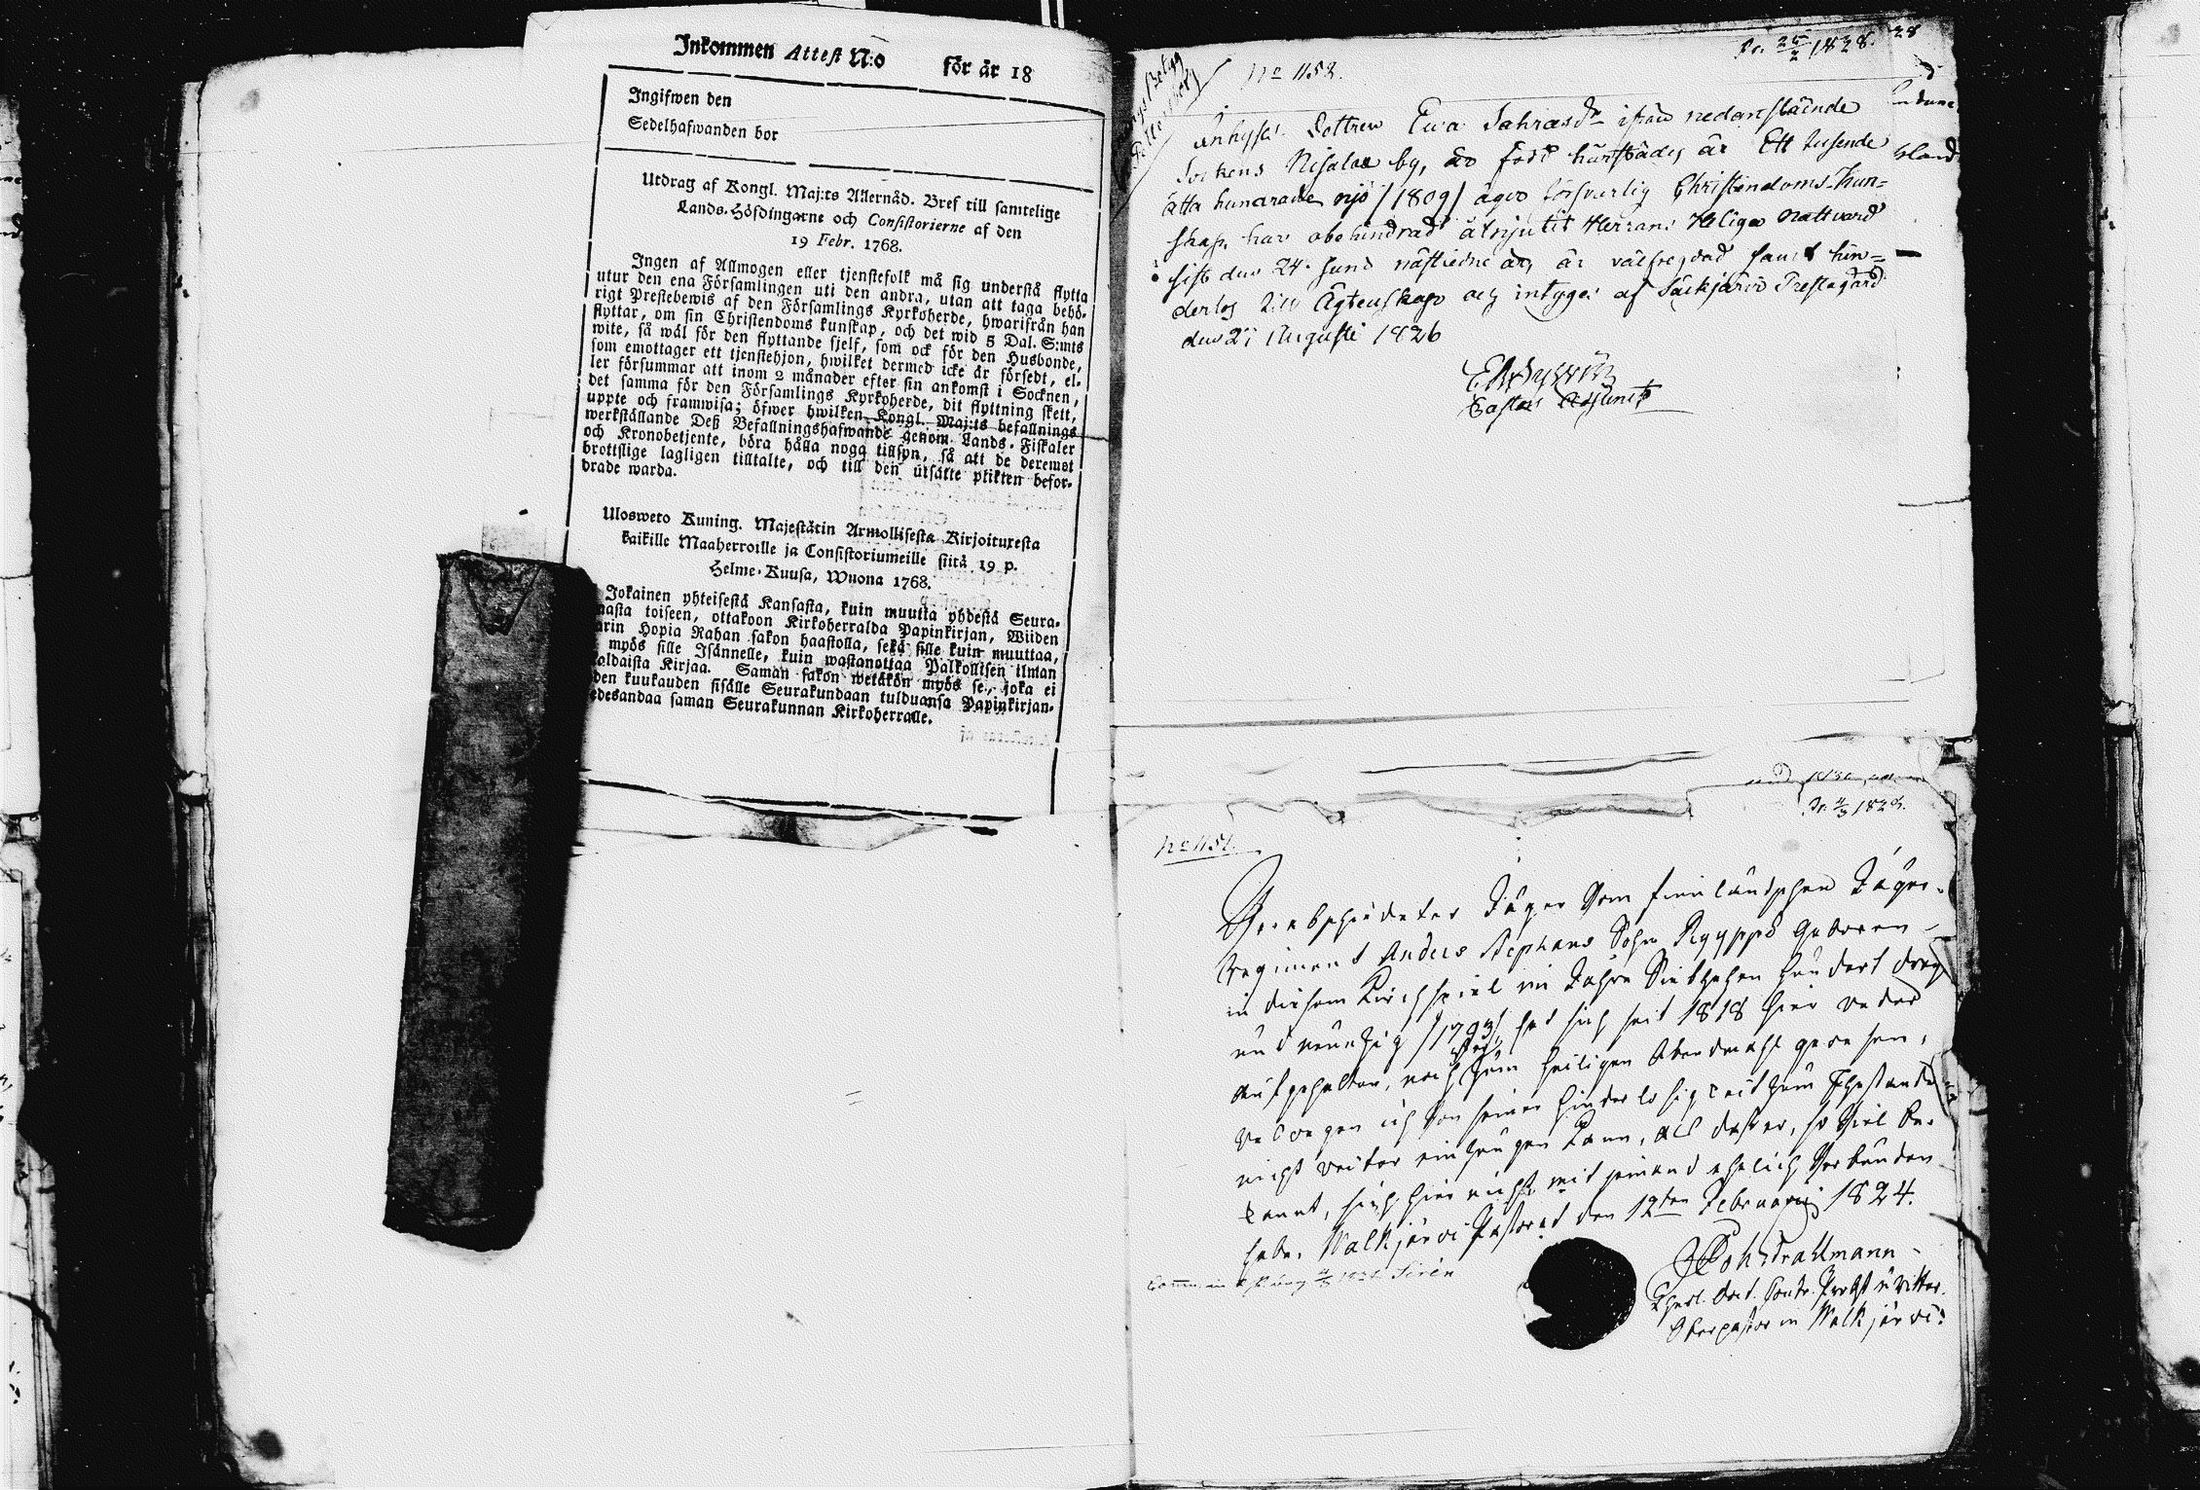 Inkommen Attest N:o för år 18
Ingifwen den
Sedelhafwanden bor
Utdrag af Kongl. Maj:ts Allernåd. Bref till samtelige
Lands-Höfdingarne och Consistorierne af den
19 Febr. 1768.
Ingen af Allmogen eller tjenstefolk må sig understå flytta
utur den ena Församlingen uti den andra, utan att taga behö-
rigt Prestebewis af den Församlings Kyrkoherde, hwarifrån han
flyttar, om sin Christendoms kunskap, och det wid 5 Dal. S:mts
wite, så wäl för den flyttande sjelf, som ock för den Husbonde,
som emottager ett tjenstehjon, hwilket dermed icke är försedt, el-
ler försummar att inom 2 månader efter sin ankomst i Socknen,
det samma för den Församlings Kyrkoherde, dit flyttning skett,
uppte och framwisa; öfwer hwilken Kongl. Maj:ts befallnings
werkställande Deß Befallningshafwande genom Lands-Fiskaler
och Kronobetjente, böra hålla noga tillsyn, så att de deremot
brottslige lagligen tilltalte, och till den utsätte plikten befor-
drade warda.
Ulosweto Kuning. Majestätin Armollisesta Kirjoituxesta
kaikille Maaherroille ja Consistoriumeille siitä 19 p.
Helme-Kuusa, Wuona 1768.
Jokainen yhteisestä Kansasta, kuin muutta yhdestä Seura-
nasta toiseen, ottakoon Kirkoherralda Papinkirjan, Wiiden
arin Hopia Rahan sakon haastolla, sekä sille kuin muuttaa,
myös sille Isännelle, kuin wastanottaa Palkollisen ilman
oldaista Kirjaa. Saman sakon wetäkön myös se, joka ei
den kuukauden sisälle Seurakundaan tulduansa Papinkirjan-
edesandaa saman Seurakunnan Kirkoherralle.
28
Pr. 25/2 1828.
No 1152.
Inhyses Dottren Ewa Sahrasdr ifrån nedanstående
Sockens Nisalax by, är född härstädes år Ett tusende
åtta hundrade nijo /1809/ äger försvarlig Christendoms-kun=
skap, har obehindrad åtnjutit Herrans Heliga Nattvard
sist den 24 Juni nästledne år, är välfregdad samt hin=
derlös till Ägtenskap och intygas af Säckjärvi Prestegård
den 27 Augusti 1826
Pastors Adjunct
Pr. 4/3 1828.
No 1151.
Verabschiedeter Jäger vom finnländschen Jäger-
Regiment Anders Stephans Sohn Ryyppö geboren
in diesem Kirchspiel im Jahre Siebzehen hundert drey
und neunzig /1793/ hat sich seit 1818 hier weder
aufgehalten, noch hier zum heiligen Abendmahl gewesen,
weswegen ich von seiner Hinderlosigkeit zum Ehestande
nicht weiter einzeugen kann, als daß er, so viel be-
kannt, sich hier nicht mit jemand ehelich verbunden
habe. Walkjärvi Pastorat den 12ten Februarij 1824.
Joh Strahlmann
Probst u Ritter.
Oberpastor in Walkjärvi.
Sirén